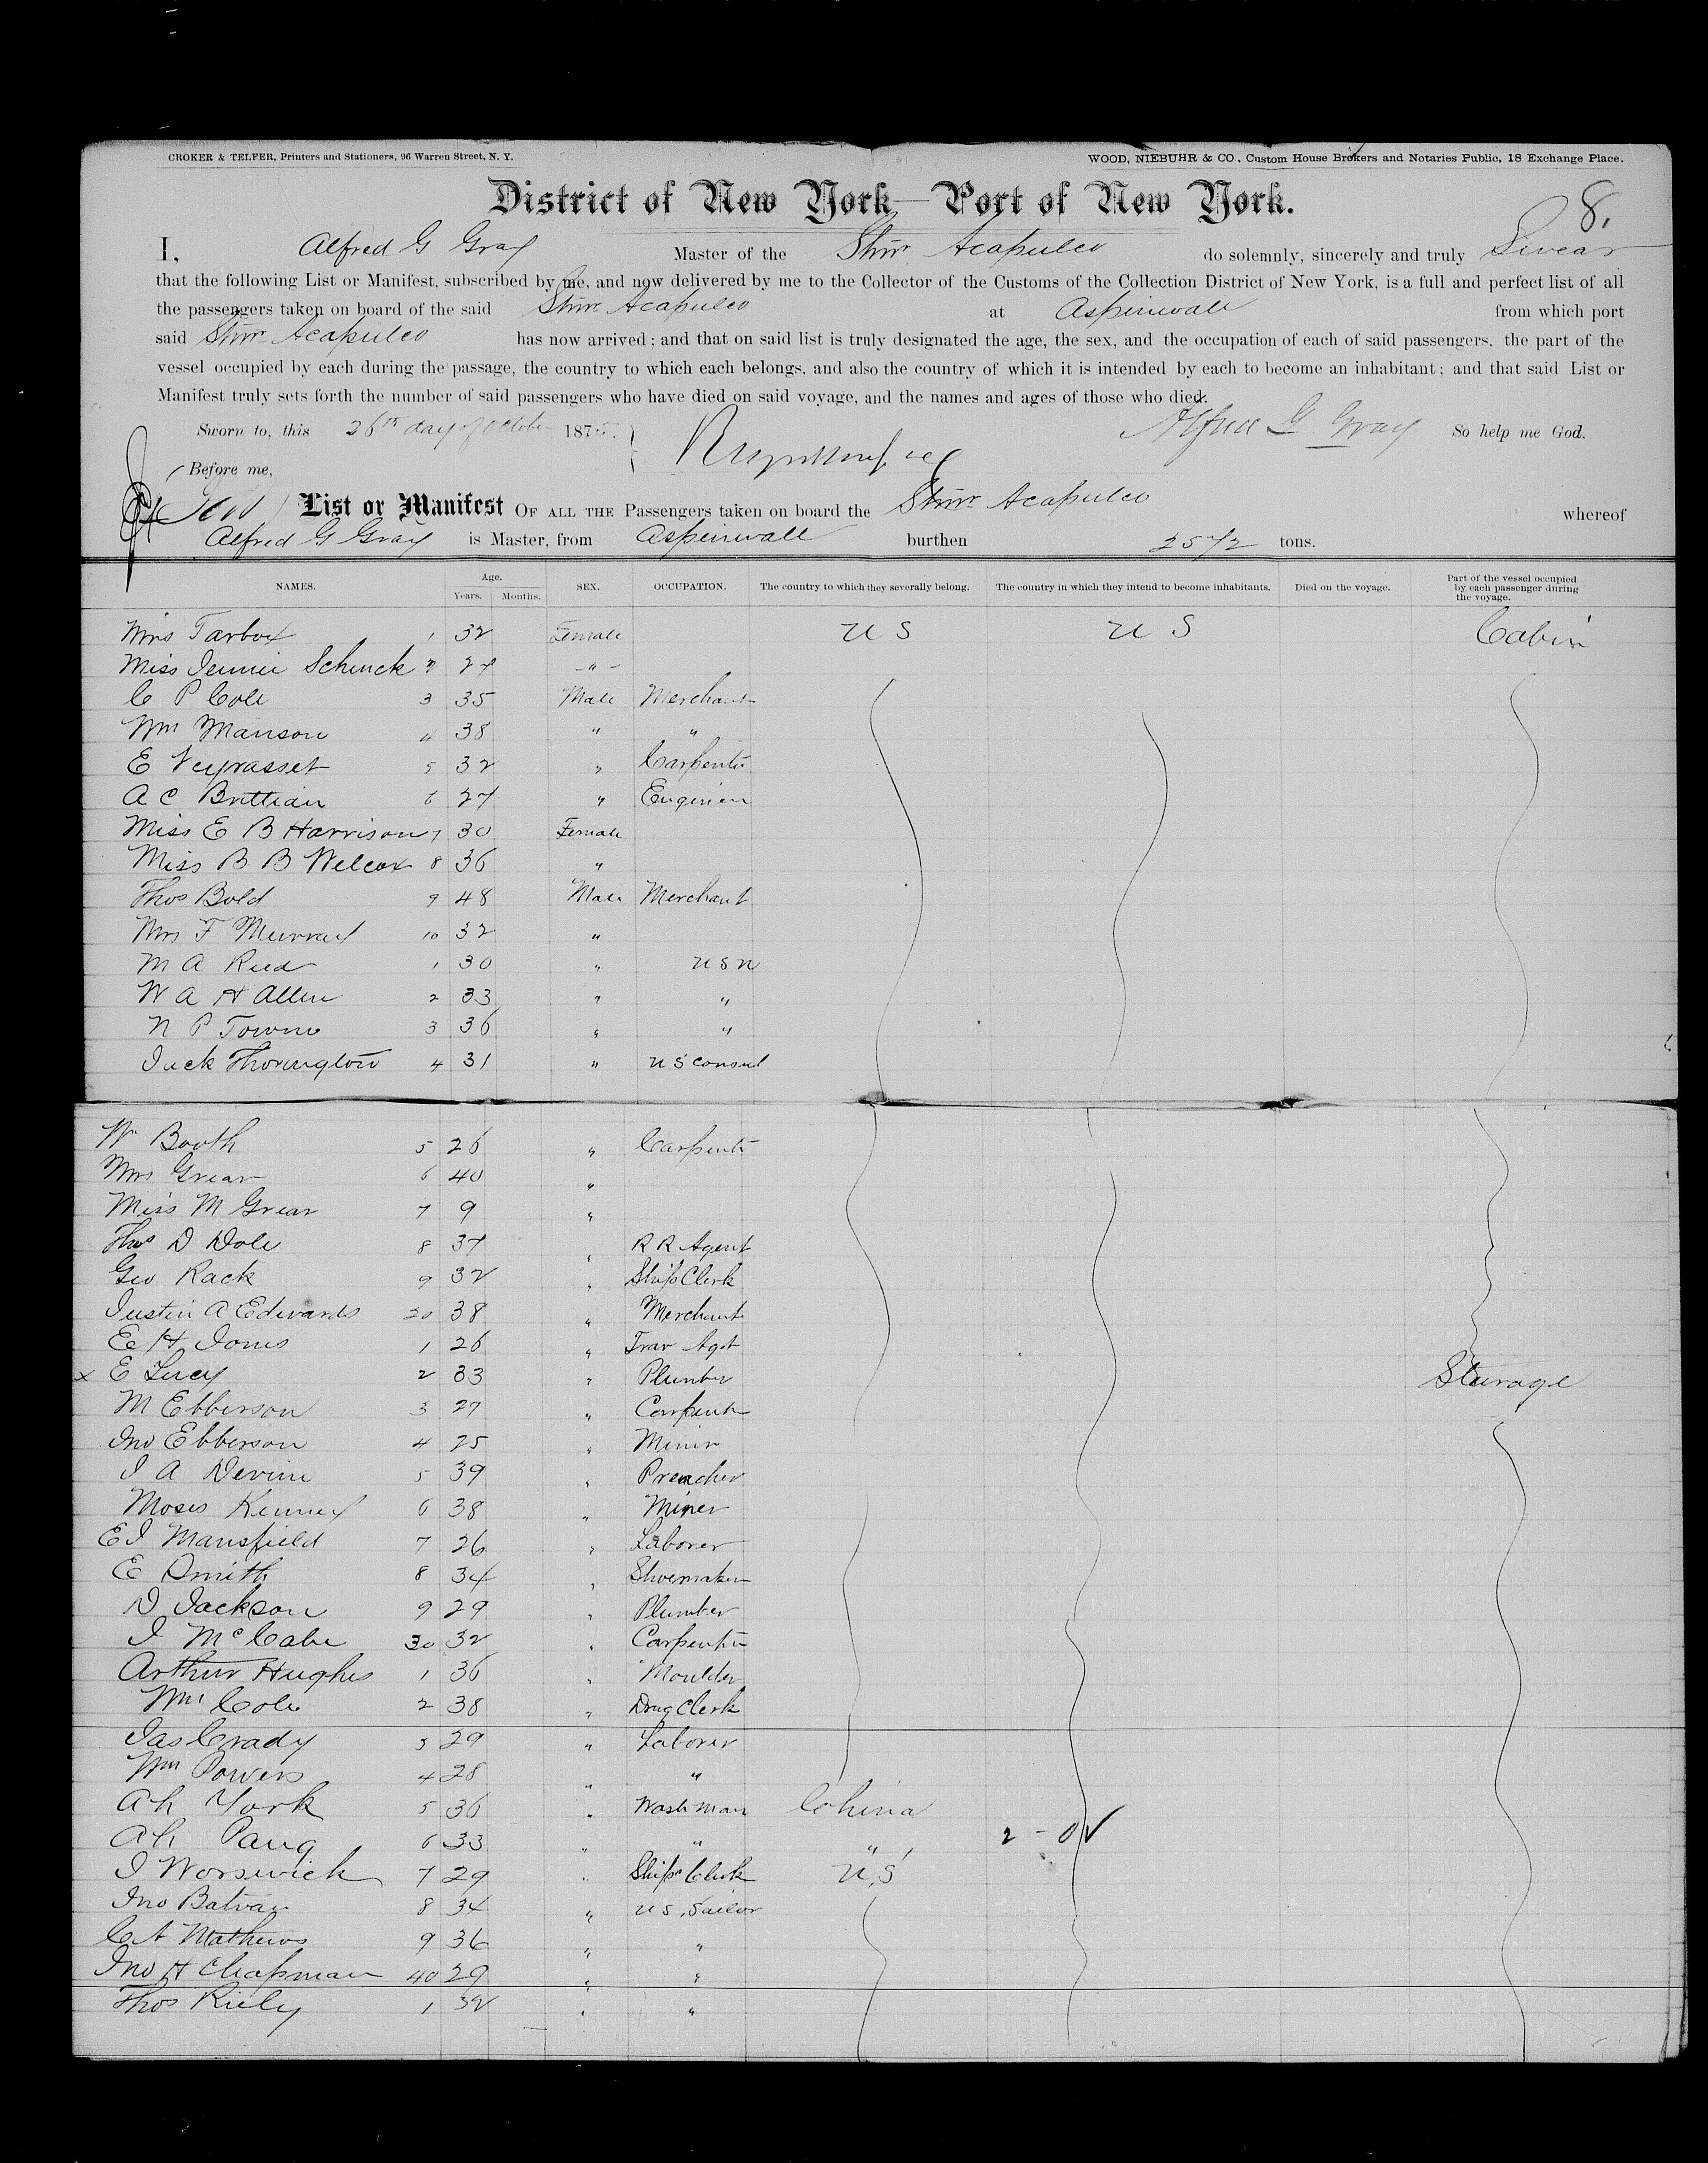 CROKER & TELFER, Printers and Stationers, 96 Warren Street, N. Y. WOOD, NIEBUHR & CO., Custom House Brokers and Notaries Public, 18 Exchange Place.
District of New York—Port of New York. 8.
I, Alfred G Gray Master of the Stmr Acapulco do solemnly, sincerely and truly Swear
that the following List or Manifest, subscribed by me, and now delivered by me to the Collector of the Customs of the Collection District of New York, is a full and perfect list of all
the passengers taken on board of the said Stmr Acapulco at Aspinwall from which port
said Stmr Acapulco has now arrived; and that on said list is truly designated the age, the sex, and the occupation of each of said passengers, the part of the
vessel occupied by each during the passage, the country to which each belongs, and also the country of which it is intended by each to become an inhabitant; and that said List or
Manifest truly sets forth the number of said passengers who have died on said voyage, and the names and ages of those who died.
Sworn to, this 26th day of October 1875. Alfred G Gray So help me God.
Before me,
List or Manifest OF ALL THE Passengers taken on board the Stmr Acapulco whereof
Alfred G Gray is Master, from Aspinwall burthen 2572 tons.
NAMES. Age. Years. Months. SEX. OCCUPATION. The country to which they severally belong. The country in which they intend to become inhabitants. Died on the voyage. Part of the vessel occupied by each passenger during the voyage.
Mrs Tarbox 1 32 Female U S U S Cabin
Miss Jennie Schenck 2 27 "
C P Cole 3 35 Male Merchant
Wm Manson 4 38 " "
E Veyrasset 5 32 " Carpenter
A C Brittian 6 27 " Engineer
Miss E B Harrison 7 30 Female
Miss B B Welcox 8 36 "
Thos Bold 9 48 Male Merchant
Mrs F Murray 10 32 "
M A Reed 1 30 " U S N
W A H Allen 2 33 " "
N P Towne 3 36 " "
Jack Thorington 4 31 " U S Consul
Wm Booth 5 26 " Carpenter
Mrs Grear 6 40 "
Miss M Grear 7 9 "
Thos D Dole 8 37 " R R Agent
Geo Rack 9 32 " Ships Clerk
Justin A Edwards 20 38 " Merchant
E H Jones 1 26 " Trav Agt
x E Lucy 2 33 " Plumber Sterage
M Ebberson 3 27 " Carpenter
Jno Ebberson 4 25 " Miner
J A Devine 5 39 " Preacher
Moses Kenney 6 38 " Miner
E J Mansfield 7 26 " Laborer
E Smith 8 34 " Shoemaker
D Jackson 9 29 " Plumber
J McCabe 30 32 " Carpenter
Arthur Hughes 1 36 " Moulder
Wm Cole 2 38 " Drug Clerk
Jas Grady 3 29 " Laborer
Wm Powers 4 28 " "
Ah York 5 36 " Wash man China
Ah Pang 6 33 " " "
J Worswick 7 29 " Ships Clerk U S
Jno Batvan 8 34 " U S Sailor
C A Mathews 9 36 " "
Jno H Chapman 40 29 " "
Thos Riely 1 32 " "